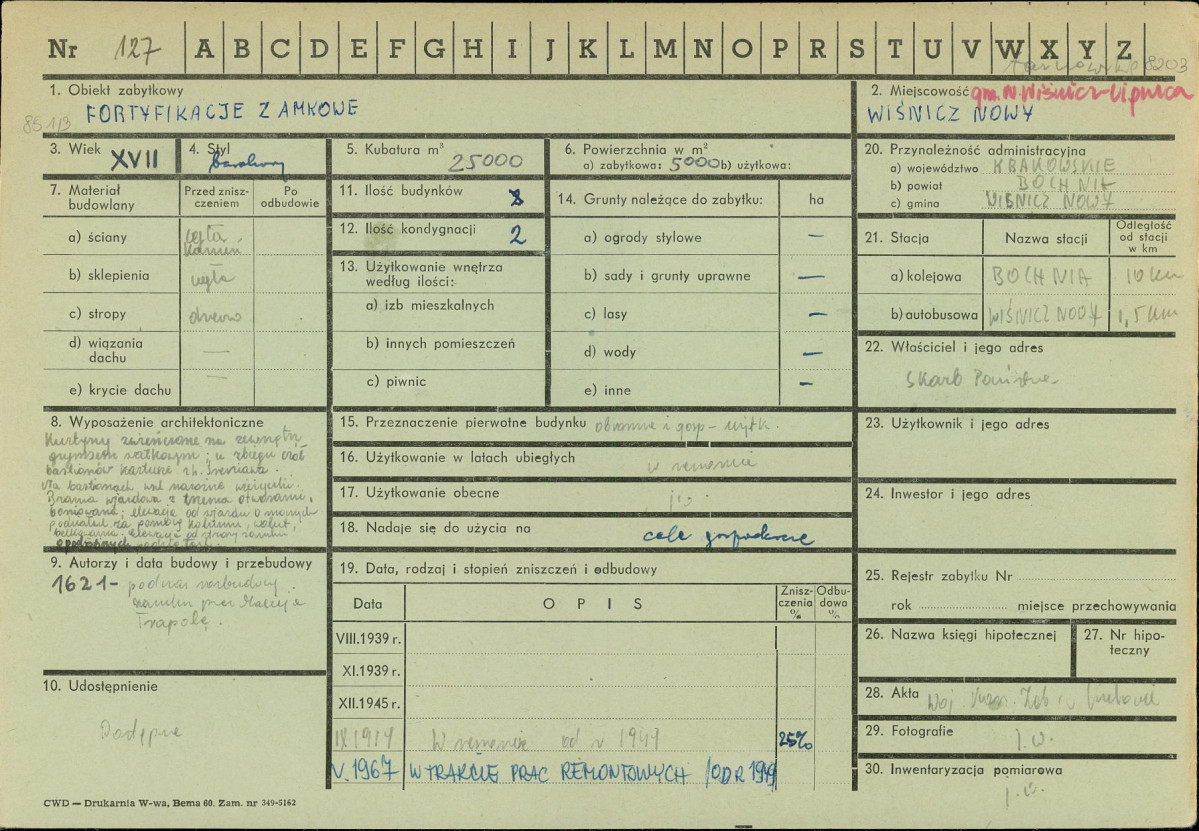 Nr 127 A B C D E F G H I J K L M N O P R S T U V W X Y Z
8203
1. Obiekt zabytkowy
FORTYFIKACJE ZAMKOWE
2. Miejscowość gm. N. Wiśnicz-Lipnica
WIŚNICZ NOWY
3. Wiek XVII
4. Styl barokowy
5. Kubatura m³ 25000
6. Powierzchnia w m²
a) zabytkowa: 5000 b) użytkowa:
7. Materiał budowlany
Przed zniszczeniem
Po odbudowie
a) ściany cegła kamień
b) sklepienia cegła
c) stropy drewno
d) wiązania dachu —
e) krycie dachu —
8. Wyposażenie architektoniczne
Kurtyny zwieńczone na zewnątrz
gzymsem wałkowym; u zbiegu czół
bastionów kartusze z h. Śreniawa.
Na bastionach
Brama wjazdowa z trzema otworami,
boniowana; elewacja od wjazdu
za pomocą kolumn, wolut,
9. Autorzy i data budowy i przebudowy
1621 - podczas rozbudowy
zamku przez Macieja
Trapolę.
10. Udostępnienie
Dostępne
11. Ilość budynków
12. Ilość kondygnacji 2
13. Użytkowanie wnętrza
według ilości:
a) izb mieszkalnych
b) innych pomieszczeń
c) piwnic
14. Grunty należące do zabytku: ha
a) ogrody stylowe —
b) sady i grunty uprawne —
c) lasy —
d) wody —
e) inne —
15. Przeznaczenie pierwotne budynku obronne i gosp-użytk.
16. Użytkowanie w latach ubiegłych w remoncie
17. Użytkowanie obecne j.w.
18. Nadaje się do użycia na cele gospodarcze
19. Data, rodzaj i stopień zniszczeń i odbudowy
Data O P I S Zniszczenia % Odbudowa %
VIII.1939 r.
XI.1939 r.
XII.1945 r.
W remoncie od r 1949 25%
V.1967 W TRAKCIE PRAC REMONTOWYCH /OD R 1949
20. Przynależność administracyjna
a) województwo KRAKOWSKIE
b) powiat BOCHNIA
c) gmina WIŚNICZ NOWY
21. Stacja Nazwa stacji Odległość od stacji w km
a) kolejowa BOCHNIA 10 km
b) autobusowa WIŚNICZ NOWY 1,5 km
22. Właściciel i jego adres
Skarb Państwa
23. Użytkownik i jego adres
24. Inwestor i jego adres
25. Rejestr zabytku Nr
rok miejsce przechowywania
26. Nazwa księgi hipotecznej
27. Nr hipoteczny
28. Akta Woj.
29. Fotografie j.w.
30. Inwentaryzacja pomiarowa
j.w.
CWD — Drukarnia W-wa, Bema 60. Zam. nr 349-5162